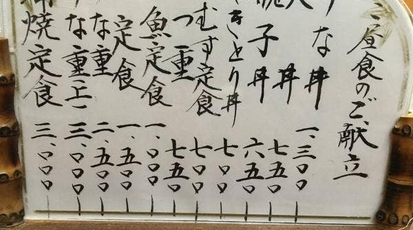 昼食のご献立
な丼 一、三〇〇
丼 七五〇
子丼 六五〇
きとり丼 七〇〇
むす定食 七〇〇
つ重 七五〇
魚定食 一、〇〇〇
定食 一、五〇〇
な重 二、五〇〇
な重上 三、〇〇〇
焼定食 三、〇〇〇